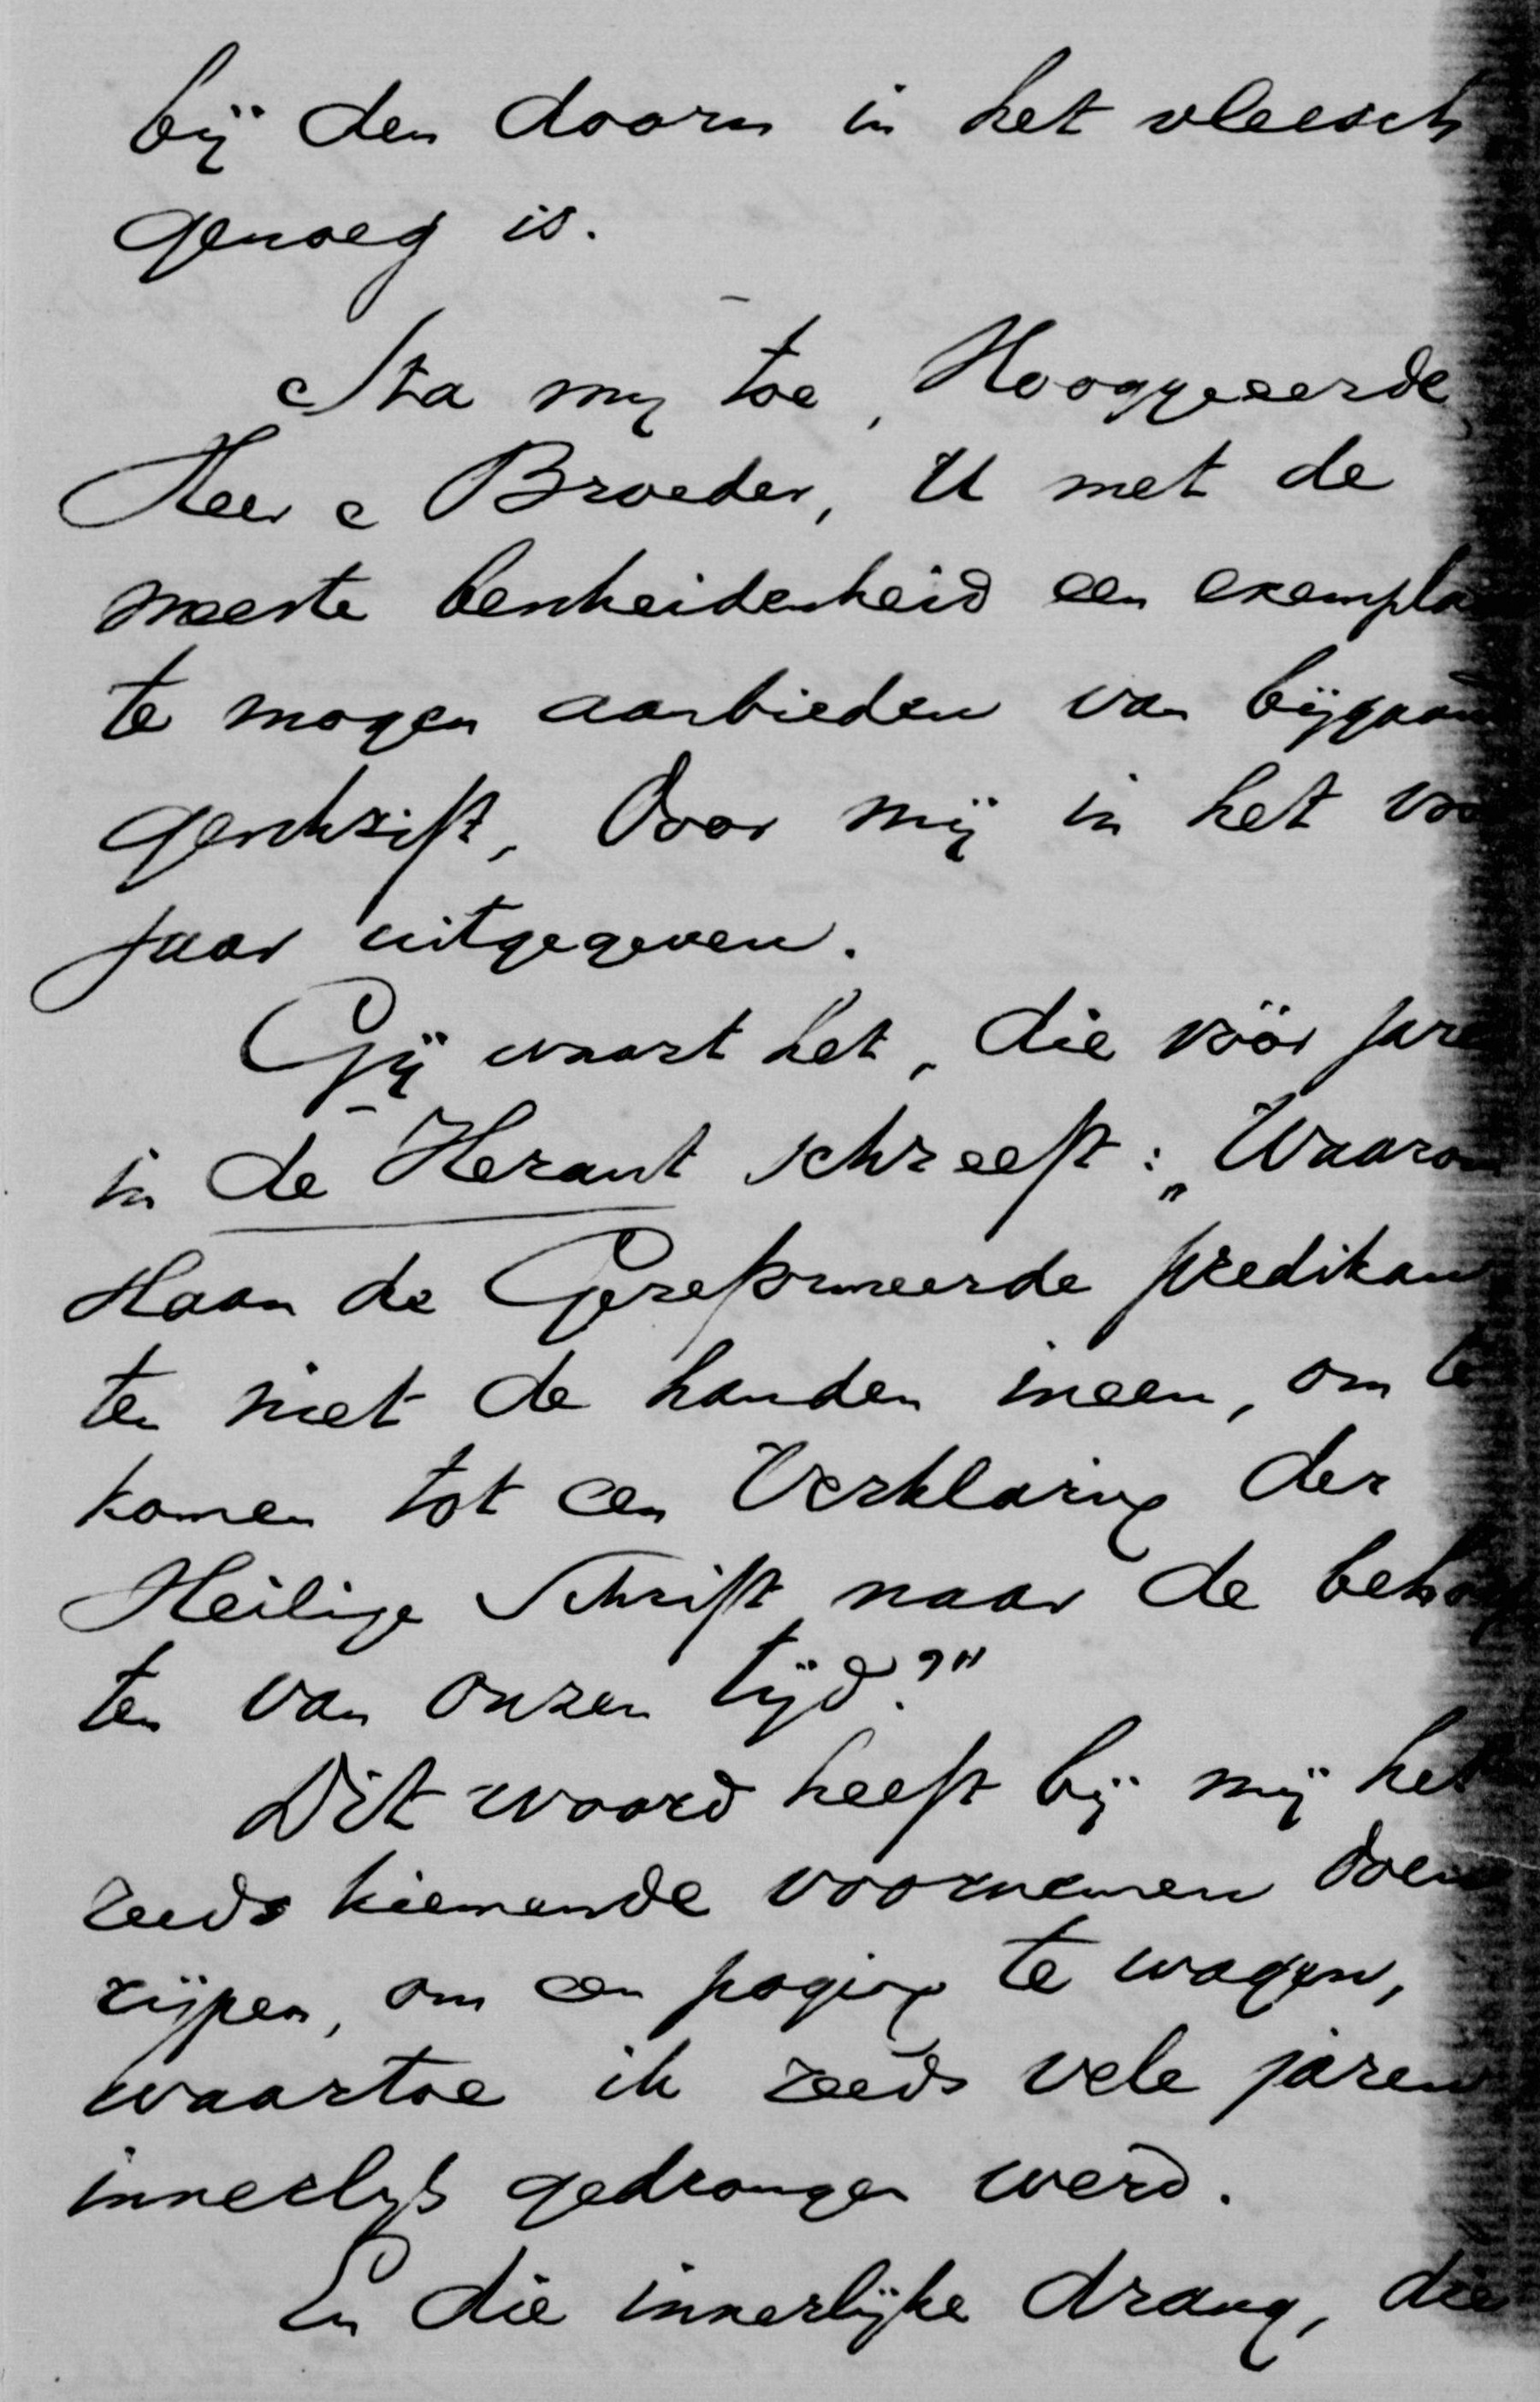 bij den doorn in het vleesch
genoeg is.
Sta mij toe, Hooggeeerde
Heer e Broeder, U met de
meeste bescheidenheid een exempla
te mogen aanbieden van bijgaand
geschrift, door mij in het voo
jaar uitgegeven.
Gij waart het, die vóór jare
in de Heraut schreeft: „Waarom
slaan de Gereformeerde predikan
ten niet de handen ineen, om te
komen tot een Verklaring der
Heilige Schrift naar de behoef
ten van onzen tijd?"
Dit woord heeft bij mij het
reeds kiemende voornemen doen
rijpen, om een poging te wagen,
waartoe ik reeds vele jaren
innerlijk gedrongen werd.
En die innerlijke drang, die